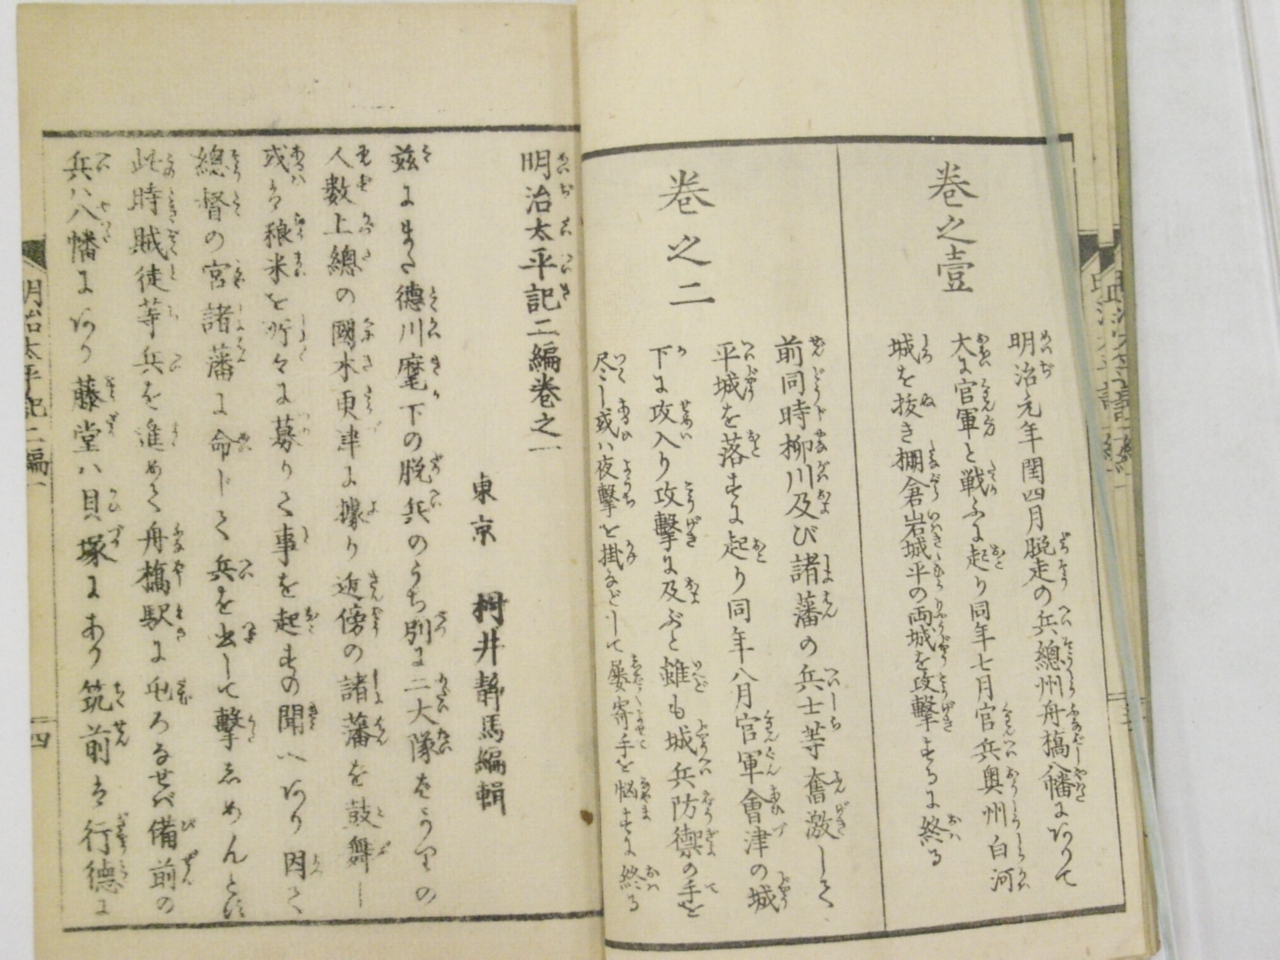 巻之壹
明治元年閏四月脱走の兵總州舟橋八幡にありて
大に官軍と戦ふに起り同年七月官兵奥州白河
城を抜き棚倉岩城平の両城を攻撃するに終る
巻之二
前同時柳川及び諸藩の兵士等奮激して
平城を落すに起り同年八月官軍會津の城
下に攻入り攻撃に及ぶと雖も城兵防禦の手を
尽し或ハ夜撃を掛るどして屡寄手を悩すに終る
明治太平記二編巻之一
東京 桝井靜馬編輯
茲にまた德川麾下の脱兵のうち別に二大隊をうりの
人數上總の國木更津に據り近傍の諸藩を鼓舞し
或は粮米を所々に募りて事を起すの聞へあり因て
總督の宮諸藩に命じて兵を出して撃しめんとに
此時賊徒等兵を進めて舟橋駅に屯ろなせバ備前の
兵ハ八幡にあり藤堂ハ貝塚にあり筑前は行德に
明治太平記二編一
四